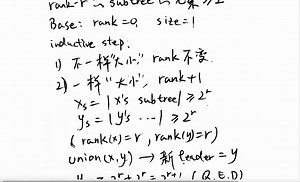 rank-r subtree 元素 ≥ 2
Base: rank=0, size=1
inductive step:
1) 不一样"大小", rank 不变
2) 一样"大小", rank+1
xs = |x's subtree| ≥ 2^r
ys = |y's ...| ≥ 2^r
(rank(x)=r, rank(y)=r)
union(x,y) → 新 leader = y
≥ 2^r+2^r = 2^r+1 (Q.E.D)